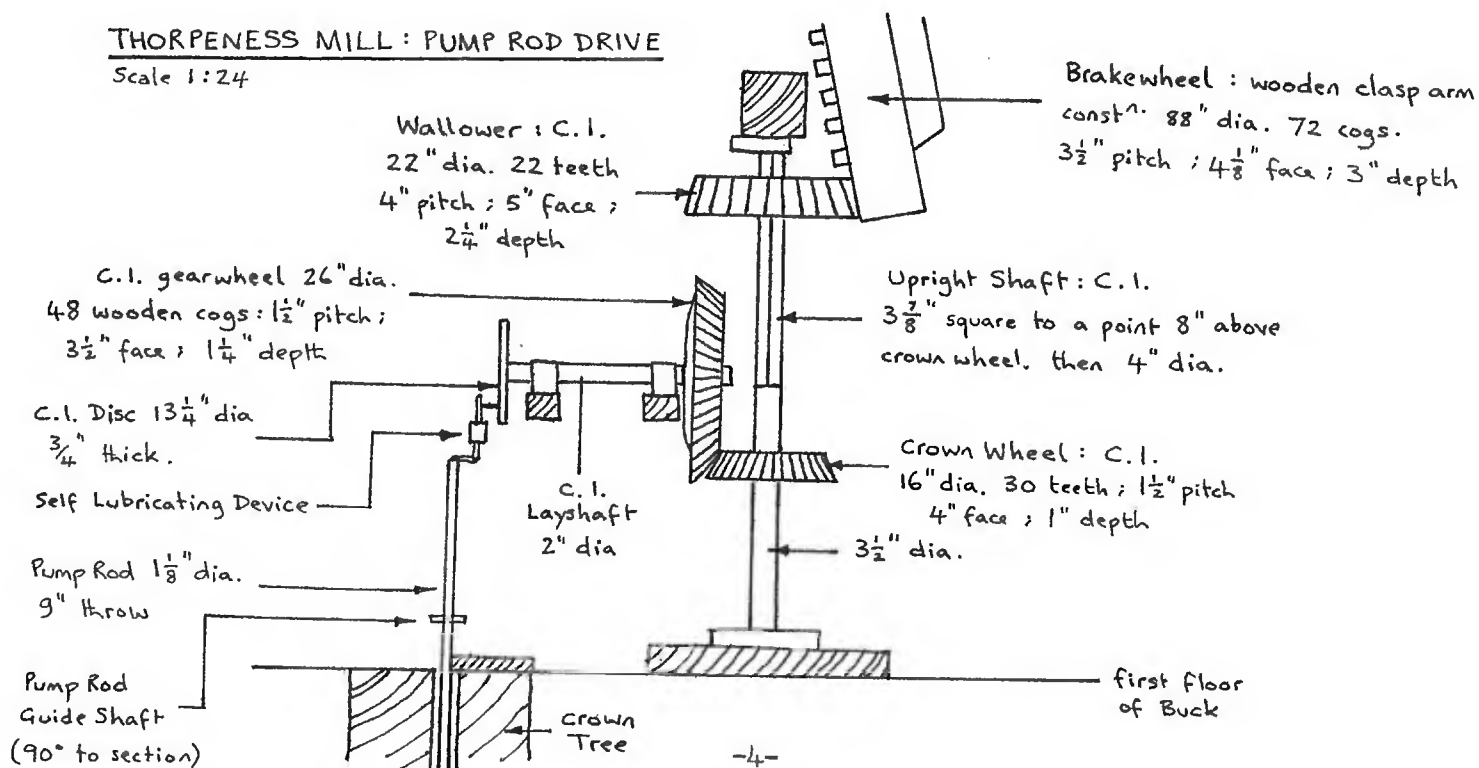 THORPENESS MILL : PUMP ROD DRIVE
Scale 1:24
Wallower : C.I.
22" dia. 22 teeth
4" pitch ; 5" face ;
2 1/4" depth
Brakewheel : wooden clasp arm
constⁿ. 88" dia. 72 cogs.
3 1/2" pitch ; 4 1/8" face ; 3" depth
C.I. gearwheel 26" dia.
48 wooden cogs : 1 1/2" pitch ;
3 1/2" face ; 1 1/4" depth
Upright Shaft : C.I.
3 7/8" square to a point 8" above
crown wheel. then 4" dia.
C.I. Disc 13 1/4" dia
3/4" thick.
Self Lubricating Device
C.I.
Layshaft
2" dia
Crown Wheel : C.I.
16" dia. 30 teeth ; 1 1/2" pitch
4" face ; 1" depth
3 1/2" dia.
Pump Rod 1 1/8" dia.
9" throw
Pump Rod
Guide Shaft
(90° to section)
Crown
Tree
first floor
of Buck
-4-